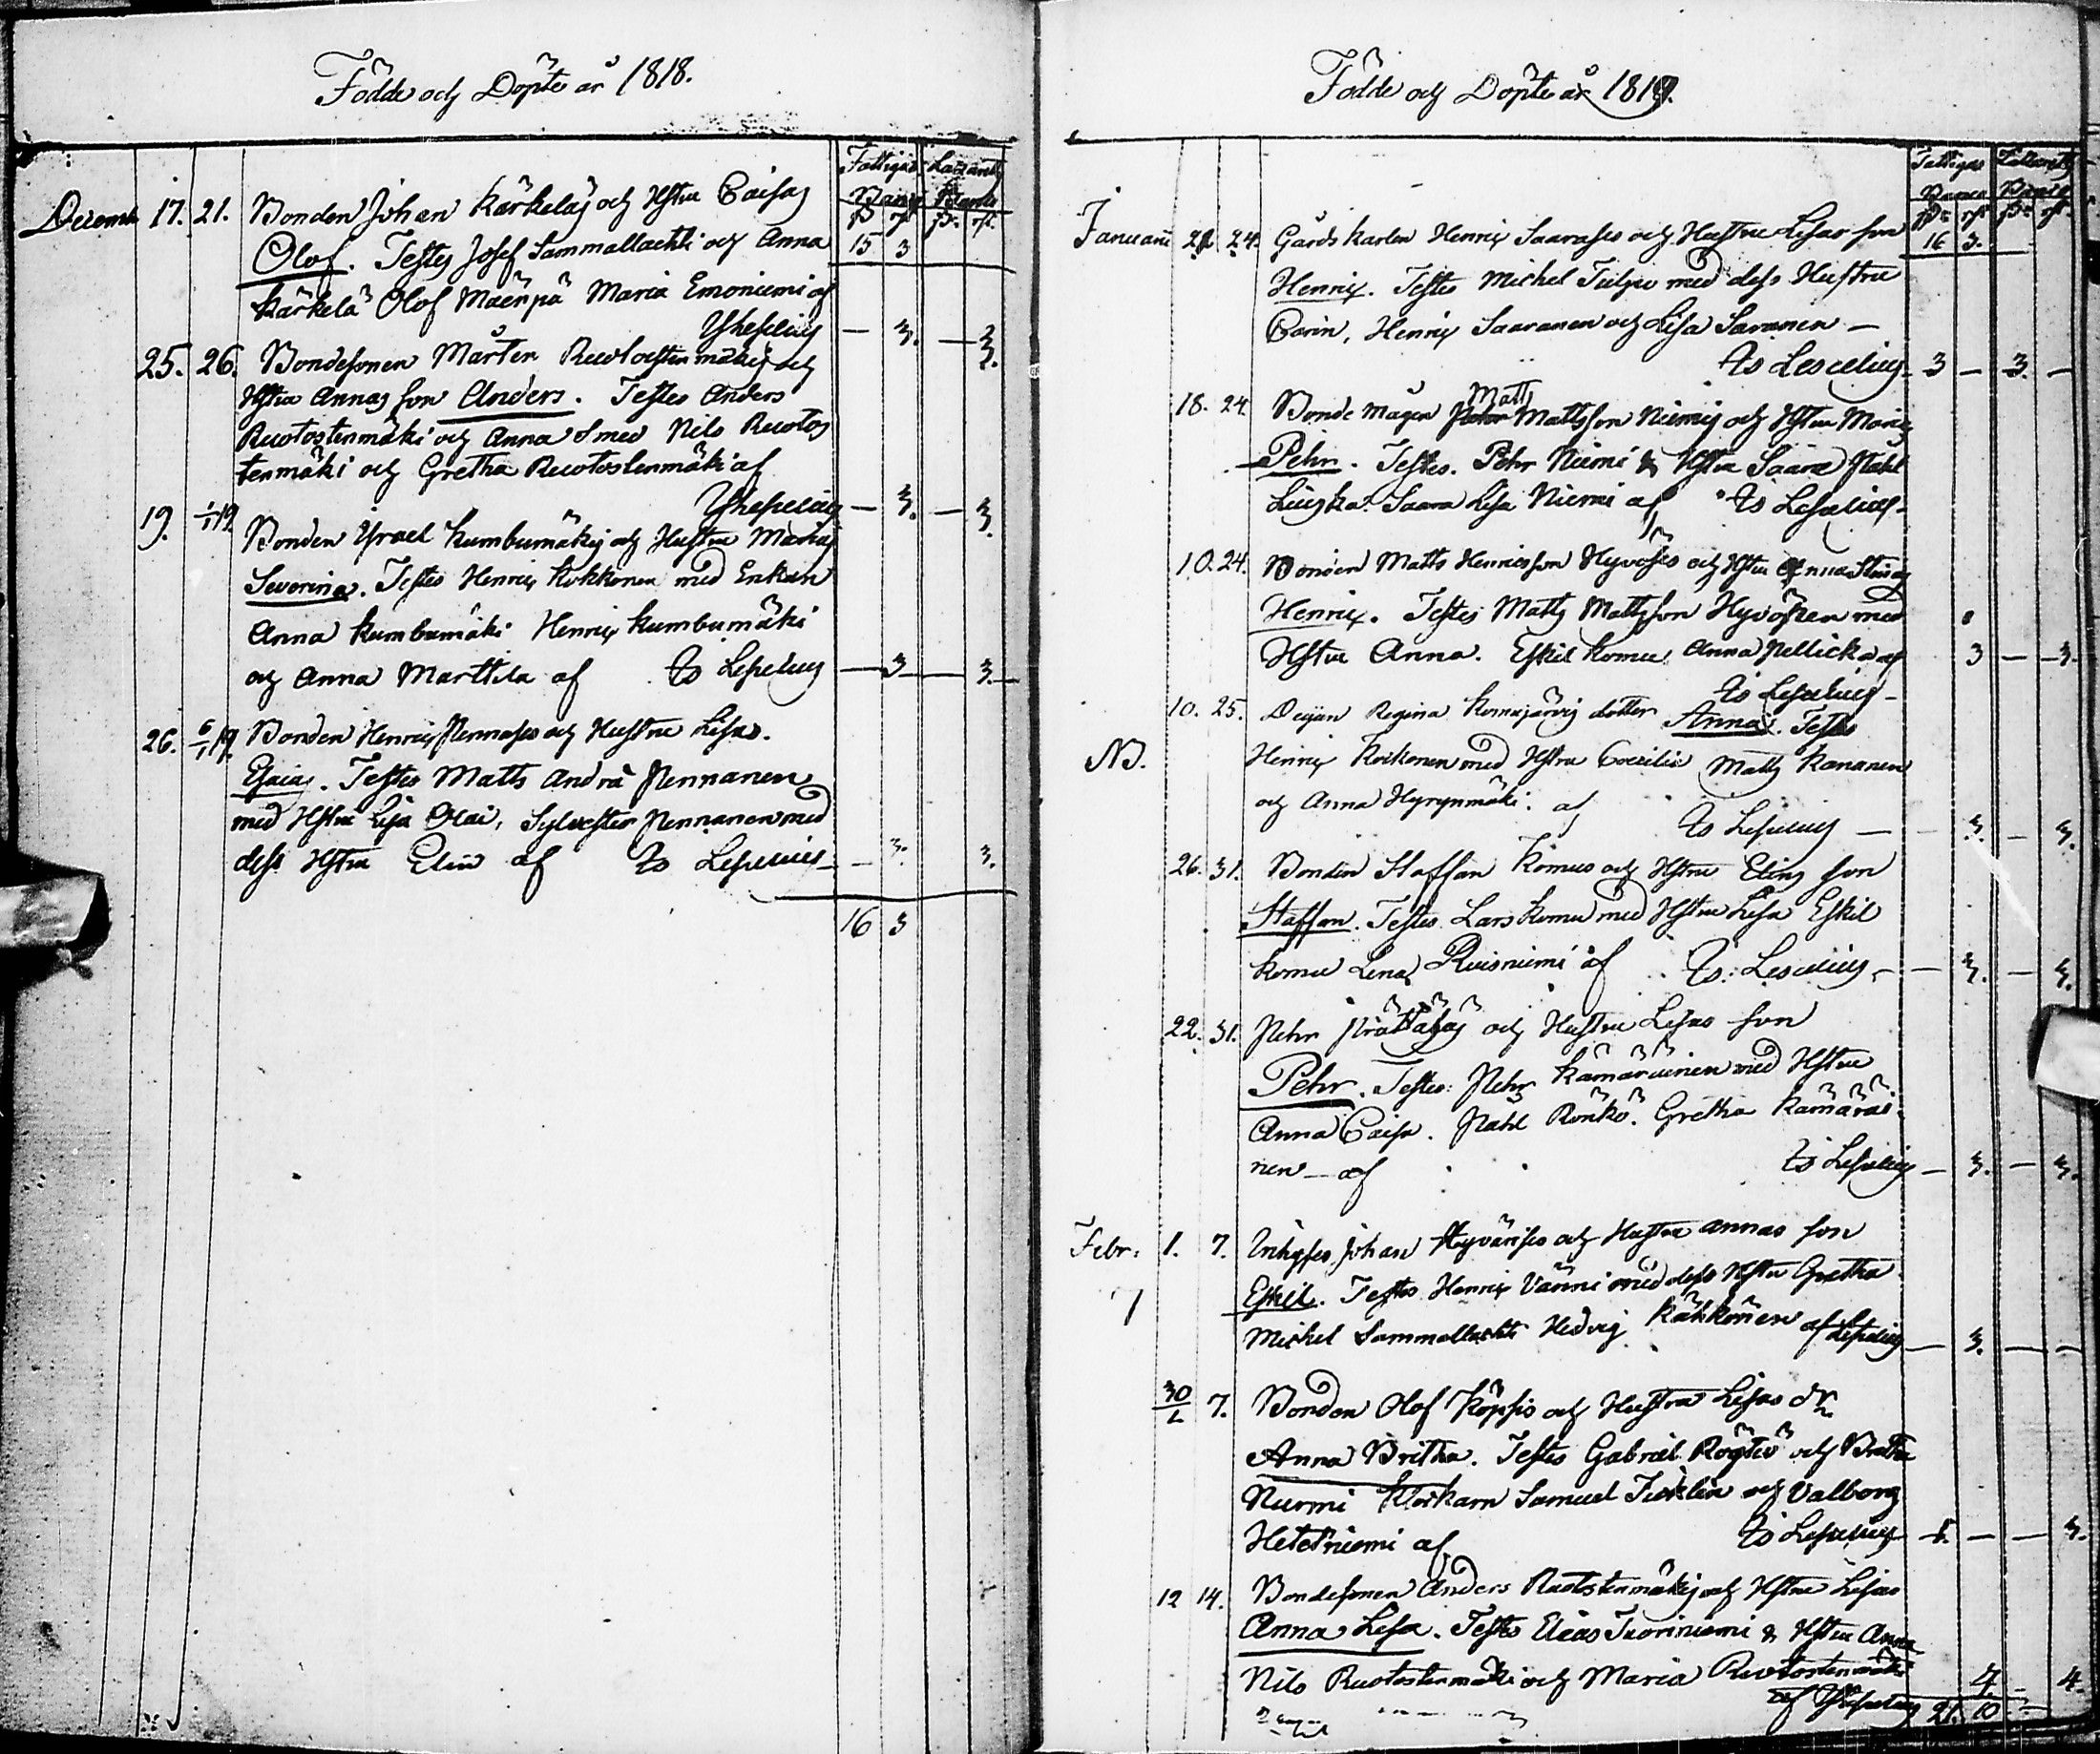 Födde och Döpte år 1818.
Fattigas Lazaretts
Decemb. 17. 21. Bonden Johan Kärkeläs och Hstru Caisas
Olof. Testes Josef Sammallachti och Anna 15 3
Kärkelä Olof Määrpä Maria Emoniemi af
— 3. — 3.
25. 26. Bondesonen Mårten Ruotostenmäkis och
Hstru Annas son Anders. Testes Anders
Ruotostenmäki och Anna Smed Nils Ruotos
tenmäki och Gretha Ruotostenmäki af
— 3. — 3.
19. 1/1 19 Bonden Israel Kumbumäkis och Hustru
Severina. Testes Henrix Kokkonen med Enkan
Anna Kumbumäki Henrix Kumbumäki
och Anna Marttila af Lescelius — 3 — 3.
26. 6/1 19. Bonden Henrix Pennases och Hustru Lisas.
Esaias. Testes Matts Andra Pennanen
med Hstru Lisa Olai, Sylvester Pennanen med
dess Hstru Elin af Lescelius — 3. 3.
16 3
Födde och Döpte år 1819.
Fattigas
Januarii 24. Gårdskarlen Henrix Saarases och Hustru Lisas son 16 3.
Henrix. Testes Michel Tulpu med dess Hustru
Carin, Henrix Saaranen och Lisa Saranen —
Lescelius 3 — 3. —
18. 24. Bonde mågen Matts Mattsson Niemis och Hstru Marias
Pehr. Testes. Pehr Niemi & Hstru Saara Påhl
Saara Lisa Niemi af Lescelius
10. 24. Bonden Matts Henricsson Hyvöses och Hstru Anna Stinas
Henrix. Testes Matts Mattsson Hyvönen med
Hstru Anna. Eskil Komu Anna Pellicka af 3 — 3.
Lescelius
10. 25. Pigan Regina Komujärvis dotter Anna. Testes
NB. Henrix Koikonen med Hstru Coecilia Matts Kananen
och Anna Hyrynmäki. af Lescelius — 3. — 3.
26. 31. Bonden Staffan Komus och Hstru Elins son
Staffan. Testes Lars Komu med Hstru Lisa Eskil
Komu Lena Ruisniemi af Lescelius — 3. — 3.
22. 31. Pehr och Hustru Lisas son
Pehr. Testes: Pehr Kämäräinen med Hstru
Anna Caisa. Påhl Rönkö. Gretha Kämäräi
nen — af Lescelius — 3. — 3.
Febr. 1. 7. Inhyses Johan Hyvärises och Hustru Annas son
Eskil. Testes Henrix Vänni med dess Hstru Gretha
Michel Sammallachti Hedvig Kähkönen af Lescelius — 3. — —
30/1 7. Bonden Olof Köpsis och Hustru Lisas dr
Anna Britha. Testes Gabriel och Britha
Nurmi Klockarn Samuel och Valborg
Heteniemi af Lescelius — 3.
12 14. Bondesonen Anders Ruotostenmäkis och Hstru Lisas
Anna Lisa. Testes Elias Tuoriniemi & Hstru Anna
Nils Ruotostenmäki och Maria Ruotostenmäki 4. 4.
af 21. 10